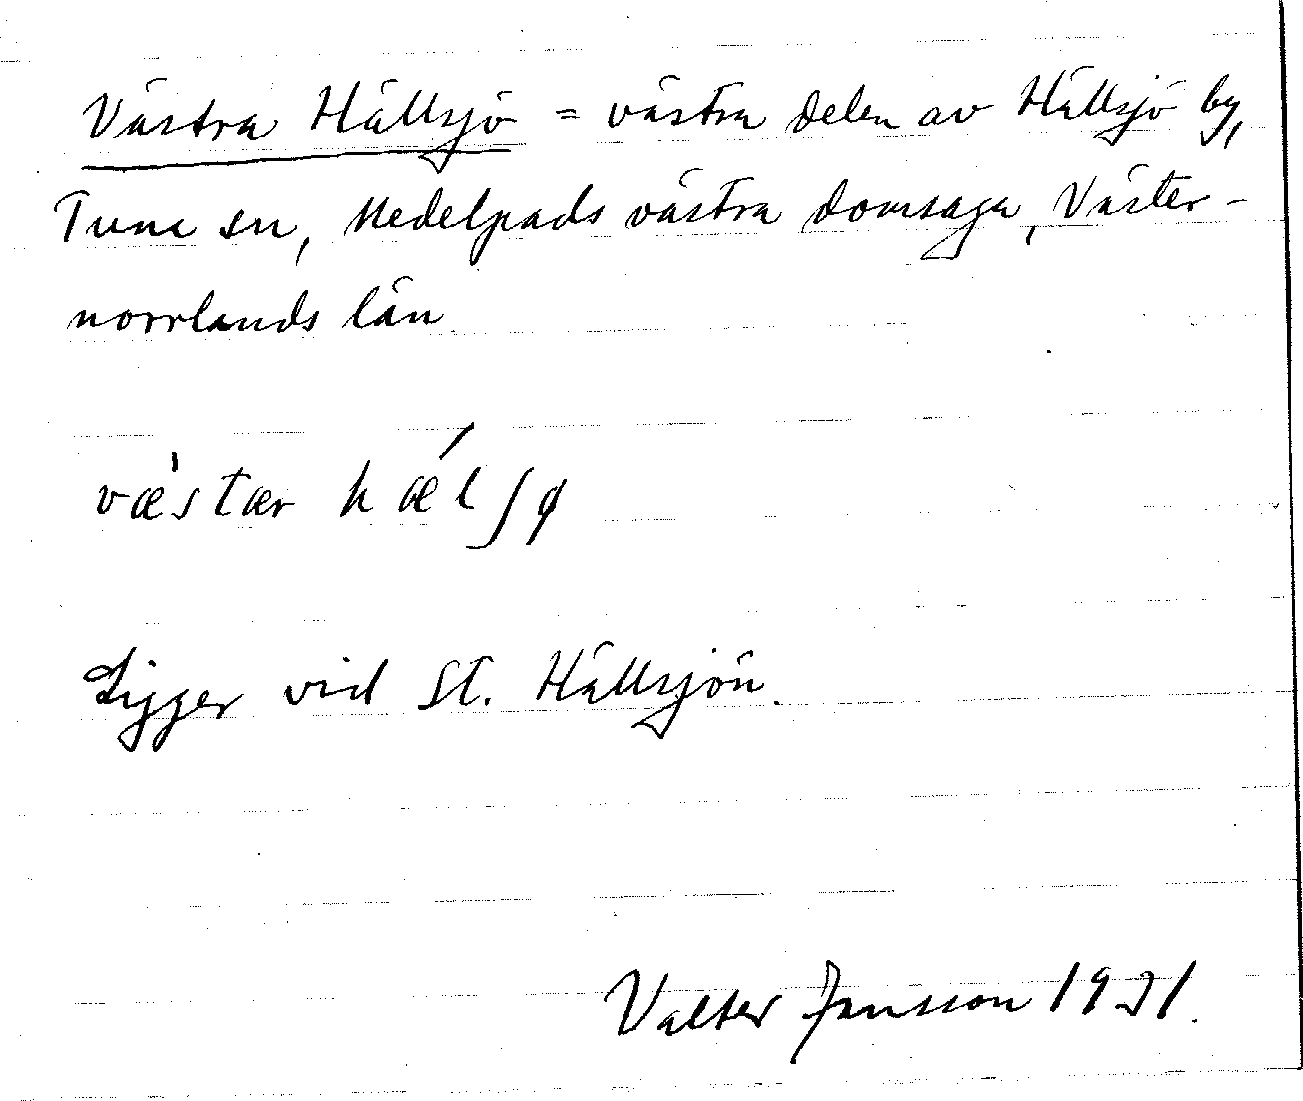 Västra Hällsjö = västra delen av Hällsjö by,
Tuna sn, Medelpads västra domsaga, Väster-
norrlands län
væ̀stær hǽlʃø
Ligger vid St. Hällsjön.
Valter Jansson 1921.